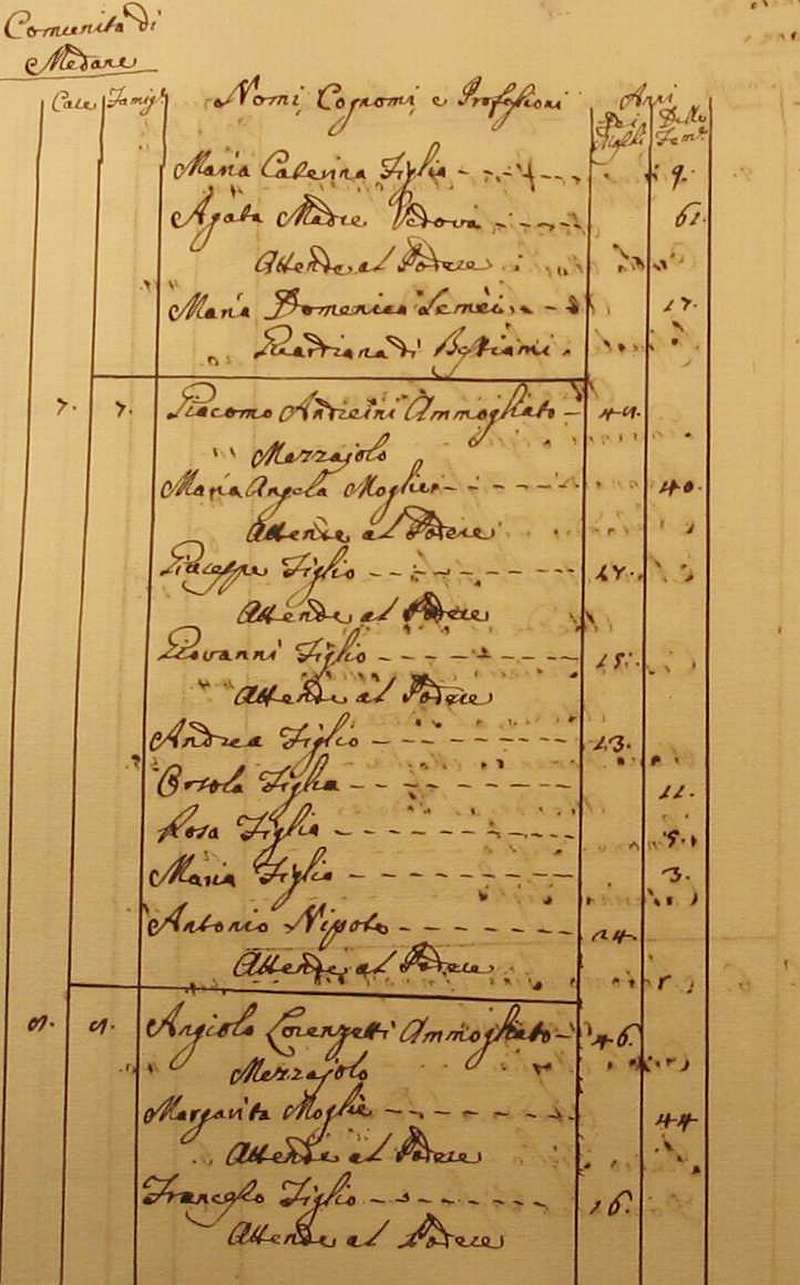 Comunità di
Medane
Case Famigl. Nomi, Cognomi, e Professioni Anni
Dei Delle
Figli Fem.
Maria Caterina Figlia 9.
Agata Madre Vedova 61.
Attende al Podere
Maria Domenica 17.
7. 7. Giacomo Andreini Ammogliato
Mezzajolo
Maria Angola Moglie 40.
Attende al Podere
Giuseppe Figlio
Attende al Podere
Giovanni Figlio 15.
Attende al Podere
Andrea Figlio 13.
Orsola Figlia 11.
Rosa Figlia 5.
Maria Figlia 3.
Antonio Nipote 24.
Attende al Podere
Angiolo Lorenzetti Ammogliato 46.
Mezzajolo
Margarita Moglie 44
Attende al Podere
Francesco Figlio 16.
Attende al Podere